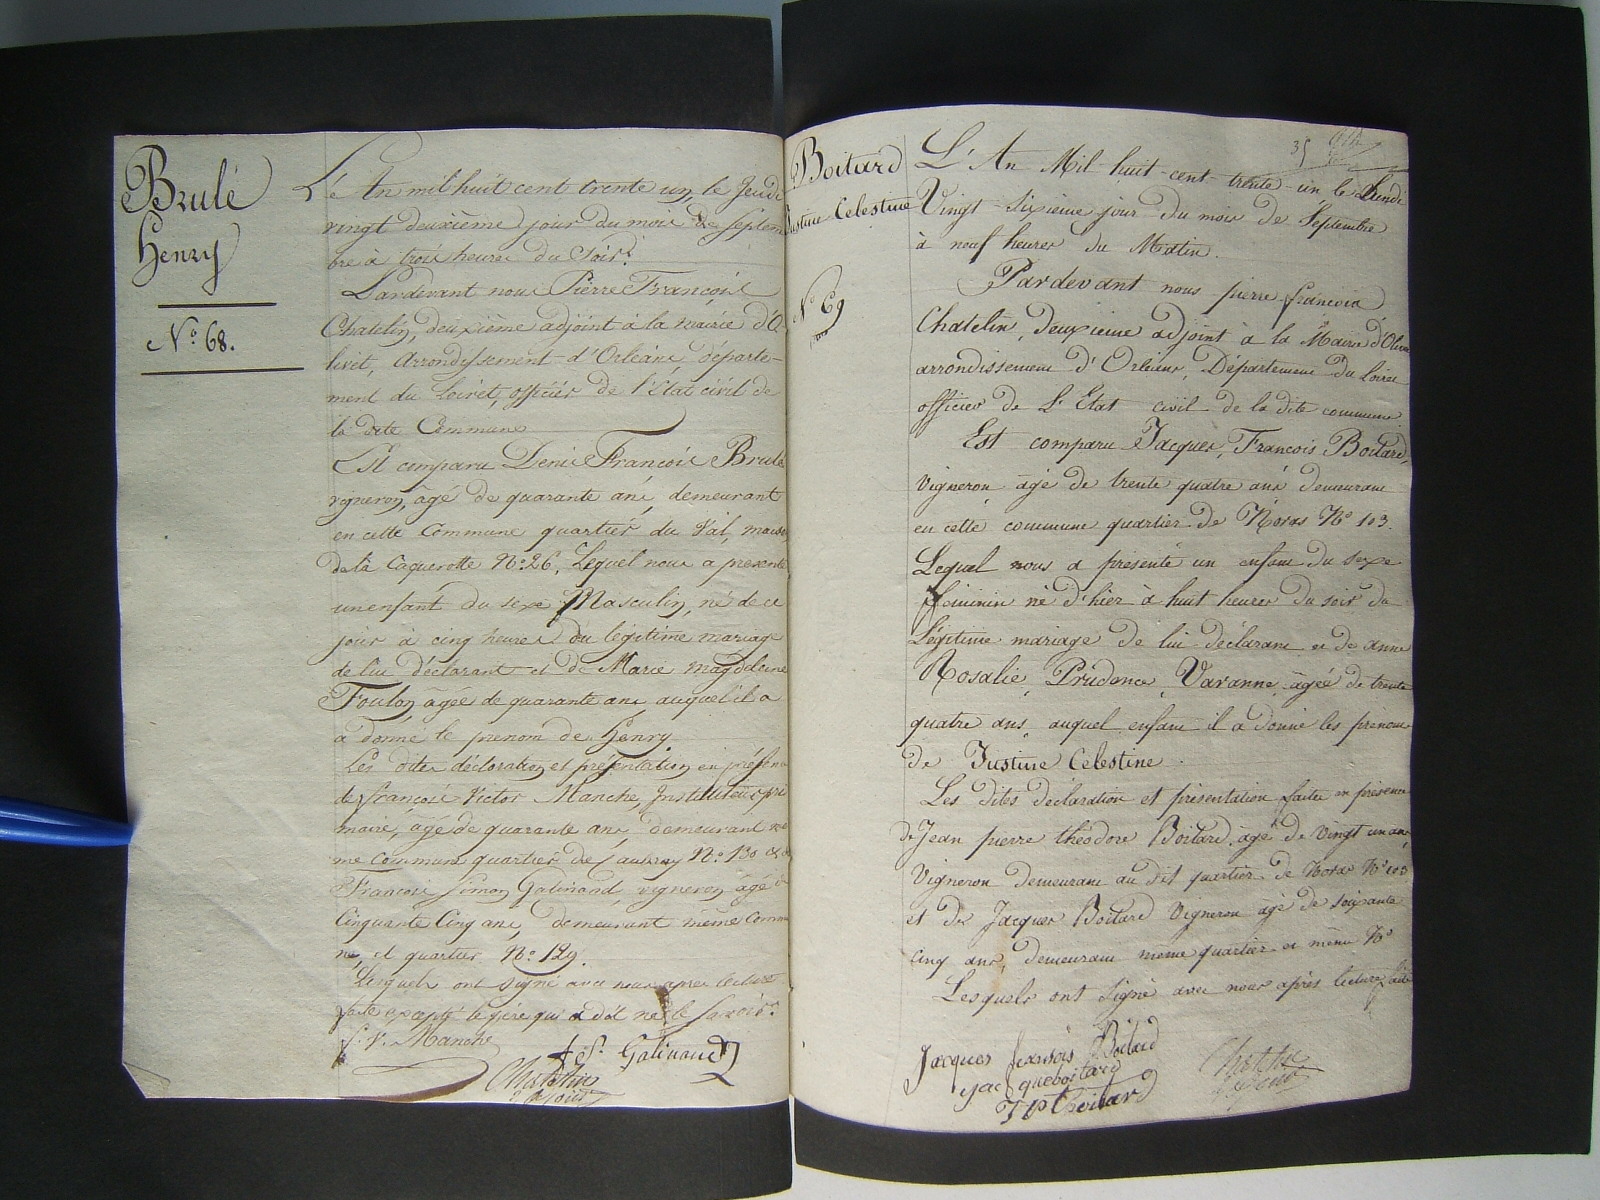 Brulé
Henry
N.º 68.
L'An mil huit cent trente un, le Jeudi
vingt deuxième jour du mois de Septem
bre à trois heures du Soir.
Pardevant nous Pierre François
Chatelin, deuxième adjoint à la mairie d'O-
livet, arrondissement d'Orléans, départe-
ment du Loiret, officier de l'Etat civil de
la dite Commune
Est comparu Denis François Brulé
vigneron, âgé de quarante ans, demeurant
en cette Commune quartier du Val, maison
de la Caquerette N.º 26, Lequel nous a présenté
un enfant du sexe Masculin, né de ce
jour à cinq heures du légitime mariage
de lui déclarant et de Marie magdeleine
Foulon, âgée de quarante ans, auquel il a
a donné le prenom de Henry
Les dites déclaration et présentation en présence
de françois Victor Manche, Instituteur pri
maire, âgé de quarante ans, demeurant mê
me commune quartier de N.º 130 et de
François Simon Galinand, vigneron âgé de
Cinquante Cinq ans, demeurant même Commu
ne, et quartier N.º 129.
Lesquels ont signé avec nous après lecture
faite excepté le père qui a dit ne le Savoir.
f. V. Manche
f. S. Galinand
Chatelin
adjoint
35
Boitard
Justine Celestine
N.º 69
L'An Mil huit-cent-trente-un le Lundi
Vingt-Sixieme jour du mois de Septembre
à neuf heures du Matin.
Pardevant nous pierre françois
Chatelin, deuxieme adjoint à la Mairie d'Olivet
arrondissement d'Orléans, Département du Loiret
officier de L'Etat civil de la dite commune
Est comparu Jacques, François Boitard,
Vigneron âgé de trente quatre ans demeurant
en cette commune quartier de Noras N.º 103.
Lequel nous a présenté un enfant du sexe
féminin né d'hier à huit heures du soir du
Légitime mariage de lui déclarant et de anne
Rosalie, Prudence, Varanne, âgée de trente
quatre ans, auquel enfant il a donné les prenoms
de Justine Célestine.
Les dites déclaration et présentation faites en présence
de Jean pierre théodore Boitard, âgé de vingt un ans,
Vigneron demeurant au dit quartier de Noras N.º 103
et de Jacques Boitard Vigneron âgé de soixante
cinq ans, demeurant même quartier et même N.º
Lesquels ont Signé avec nous après lecture faite
Jacques fransois Boitard
jacqueboitard
J P t boitard
Chatelin
adjoint